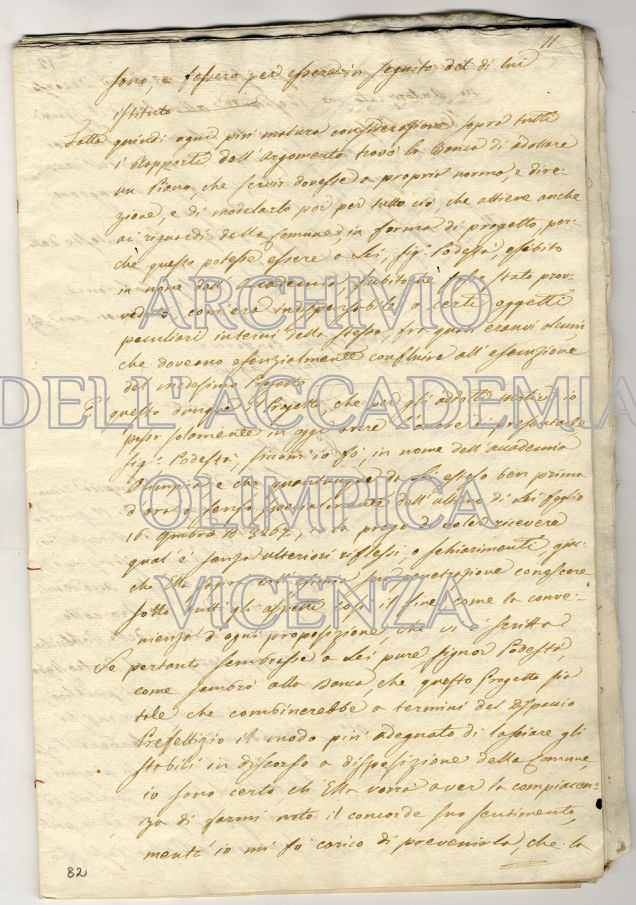 11
sono, e fossero per essere in seguito del di lui
istituto
Fatta quindi ogni più matura considerazione sopra tutti
i Rapporti dell'Argomento trovò la Banca di adottare
un Piano, che servir dovesse a propria norma, e dire-
zione, e di modelarlo poi per tutto ciò che attiene anche
ai riguardi della Comune, in forma di progetto, per-
chè questo potesse essere a Lei, Sig.r Podestà, esibito
in nome dell'Accademia, subito che fosse stato prov-
veduto, com'era indispensabile a certi oggetti
peculiari interni della stessa, fra quali eranvi alcuni
che doveano essenzialmente confluire all'esecuzione
del medesimo Progetto
E' questo dunque il Progetto, che per gli addotti motivi io
posso solamente in oggi avere l'onore di presentarle
Sig.r Podestà, siccom'io fò, in nome dell'accademia
Olimpica e che quantunque da Lei esteso ben prima
d'ora, e senza
16. 9mbre N. 3207, la prego di voler ricevere
qual'è senza ulteriori riflessi, e schiarimenti, giac-
chè Ella saprà penetrazione conoscere
sotto tutti gli aspetti così il fine, come la conve-
nienza d'ogni proposizione, che vi è scritta
Se pertanto sembrasse a Lei pure Signor Podestà,
come sembrò alla Banca, che questo Progetto sia
tale che combinerebbe a termini del Dispaccio
Prefettizio il modo più adeguato di lasciare gli
stabili in discorso a disposizione della Comune
io sono certo ch'Ella vorrà aver la compiacen-
za di farmi noto il concorde suo sentimento,
mentr'io mi fo carico di prevenirla, che la
82
ARCHIVIO
DELL'ACCADEMIA
OLIMPICA
VICENZA